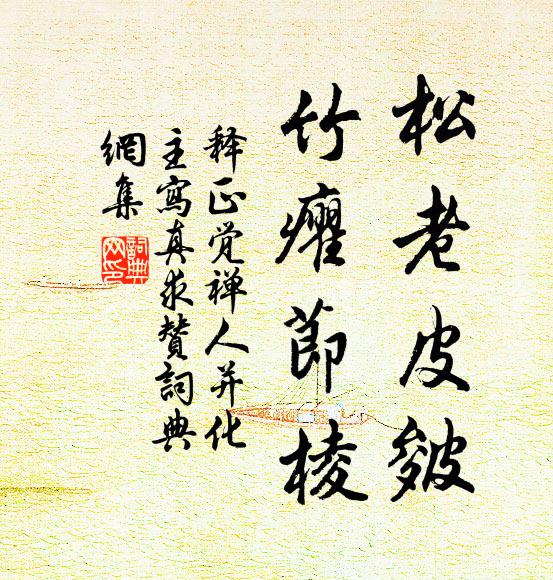 松老皮皴
竹癯節棱
释正觉禅人并化
主寫真求赞詞典
網集
詞典
网印